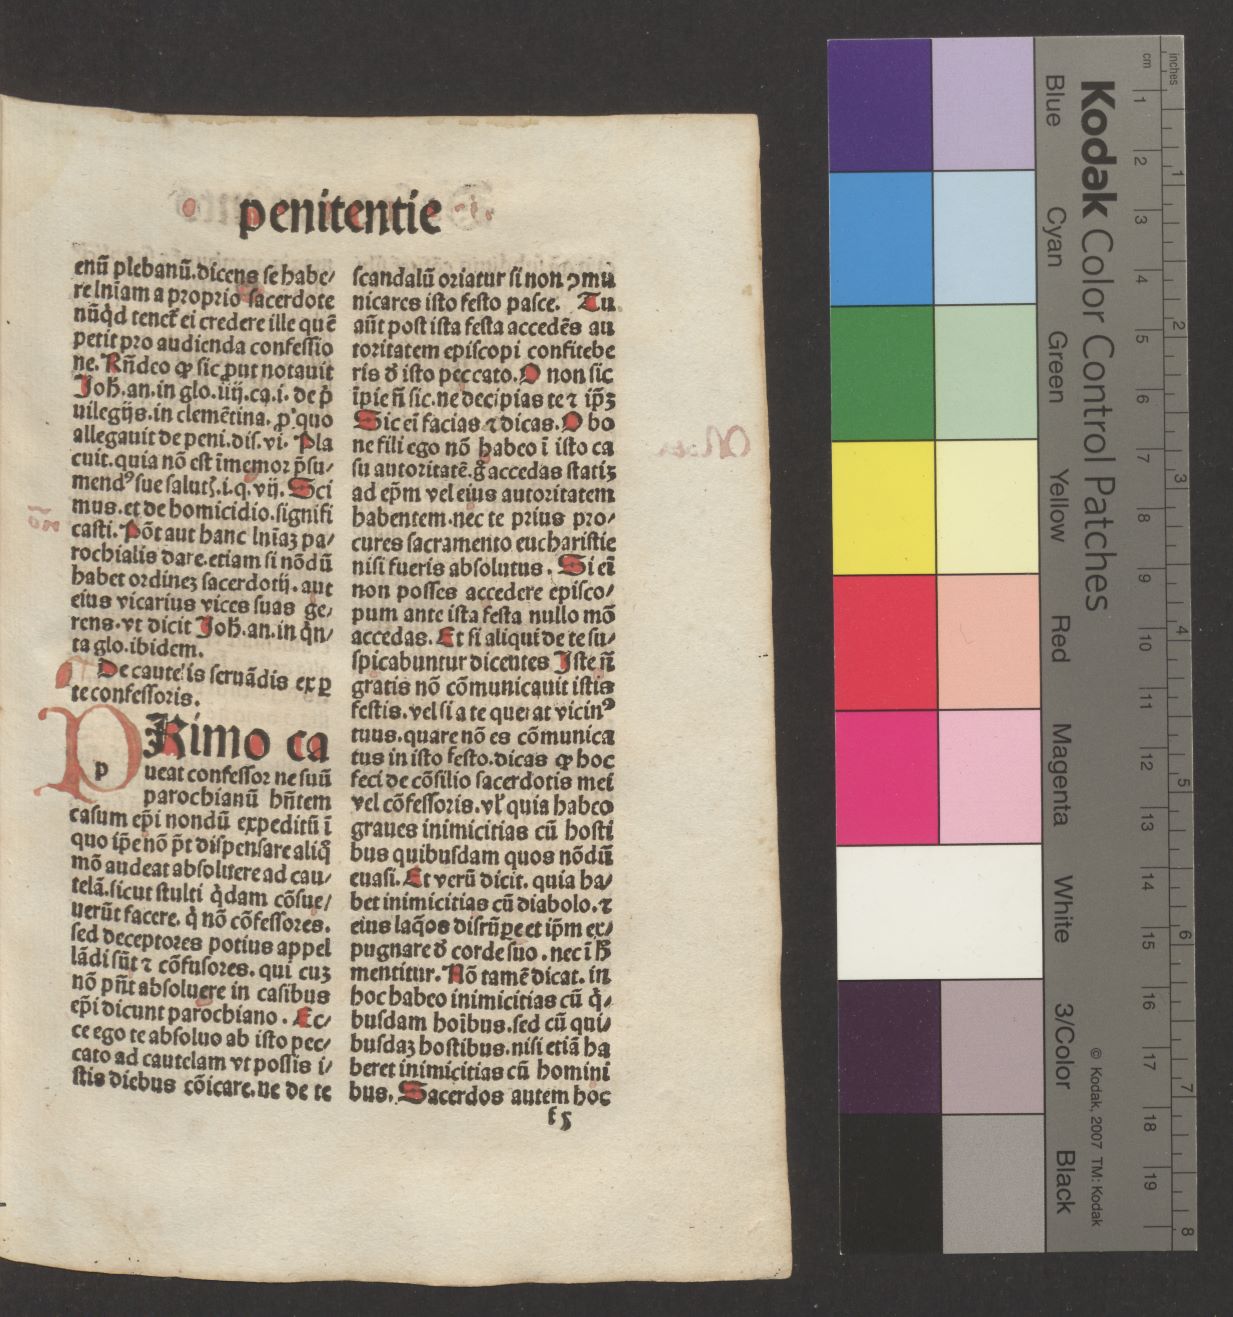 penitentie
enū plebanū.dicens se habe/
re lniam a proprio sacerdote
nūqd tenet̄ ei credere ille quē
petit pro audienda confessio
ne. Rñdeo ꝙ sic ꝓut notauit
Joh̄.an.in glo.iiij.ca.i. de p̄
uilegijs.in clemētina. ꝓ quo
allegauit de peni.dis.vi. Pla
cuit.quia nō est īmemor p̄su/
mendꝰ sue salutꝭ.i.q.vij. Sci
mus.et de homicidio.signifi
casti. Pōt aut hanc lniaꝫ pa/
rochialis dare.etiam si nōdū
habet ordineꝫ sacerdotij. aut
eius vicarius vices suas ge/
rens.vt dicit Joh̄.an.in q̄n/
ta glo.ibidem.
De cautelis seruādis ex ꝑ
te confessoris.
PRimo ca
p
ueat confessor ne suū
parochianū hn̄tem
casum ep̄i nondū expeditū ī
quo ip̄e nō pt̄ dispensare aliq̄
mō audeat absoluere ad cau/
telā.sicut stulti q̇dam cōsue/
uerūt facere. q̇ nō cōfessores.
sed deceptores potius appel
lādi sūt ⁊ cōfusores. qui cuꝫ
nō pn̄t absoluere in casibus
ep̄i dicunt parochiano . Ec/
ce ego te absoluo ab isto pec/
cato ad cautelam vt possis i/
stis diebus cōicare. ne de te
scandalū oriatur si non ꝯmu
nicares isto festo pasce. Tu
aūt post ista festa accedēs au
toritatem episcopi confitebe
ris ð isto peccato. O non sic
īpie n̄ sic. ne decipias te ⁊ ip̄ꝫ
Sic eī facias ⁊ dicas. O bo
ne fili ego nō habeo ī isto ca
su autoritatē.g̊ accedas statiꝫ
ad ep̄m vel eius autoritatem
habentem.nec te prius pro/
cures sacramento eucharistie
nisi fueris absolutus . Si eī
non posses accedere episco/
pum ante ista festa nullo mō
accedas. Et si aliqui de te su/
spicabuntur dicentes Iste n̄
gratis nō cōmunicauit istis
festis.vel si a te querat vicinꝰ
tuus.quare nō es cōmunica
tus in isto festo.dicas ꝙ hoc
feci de cōsilio sacerdotis mei
vel cōfessoris. vł quia habeo
graues inimicitias cū hosti
bus quibusdam quos nōdū
euasi. Et verū dicit. quia ha/
bet inimicitias cū diabolo. ⁊
eius laq̄os disrūꝑe et ip̄m ex/
pugnare ð corde suo . nec ī h̄
mentitur. Nō tamē dicat. in
hoc habeo inimicitias cū q̇/
busdam hoībus.sed cū qui/
busdaꝫ hostibus.nisi etiā ha
beret inimicitias cū homini
bus. Sacerdos autem hoc
f5
Kodak Color Control Patches
Blue
Cyan
Green
Yellow
Red
Magenta
White
3/Color
Black
© Kodak, 2007 TM: Kodak
cm
1
2
3
4
5
6
7
8
9
10
11
12
13
14
15
16
17
18
19
inches
1
2
3
4
5
6
7
8